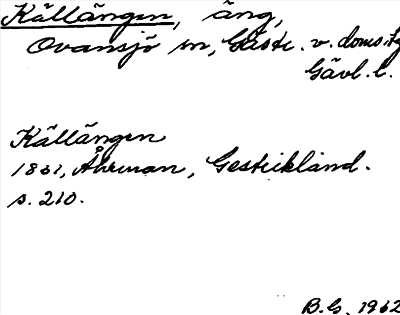 Källängen, äng,
Ovansjö sn, Gästr. v. doms. tg
Gävl. l.
Källängen
1861, Åhrman, Gestrikland.
s. 210.
B.G. 1962